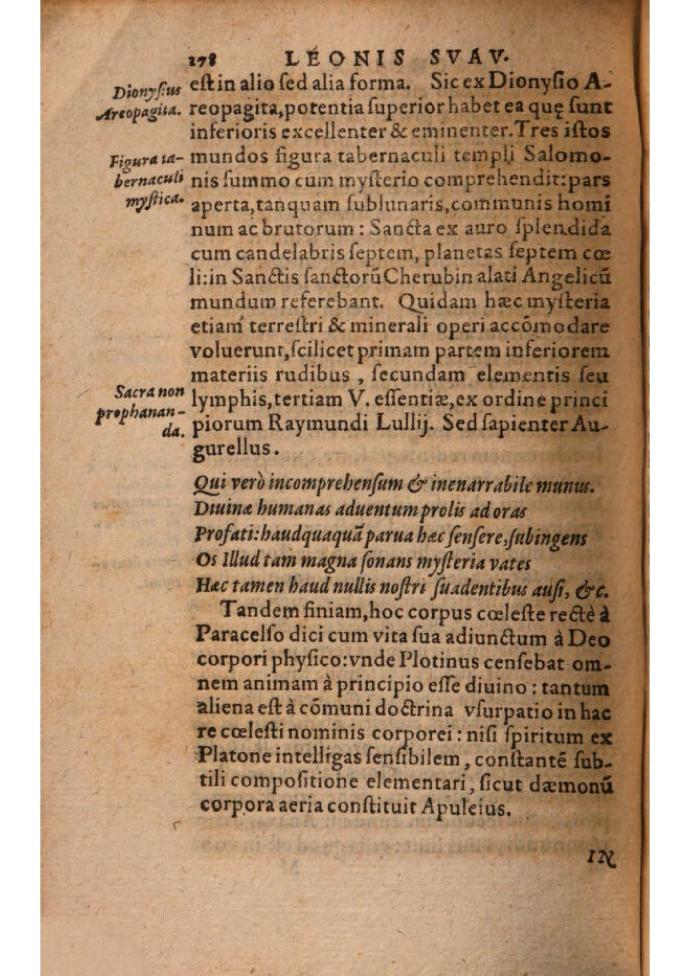 178 LEONIS SVAV.
Dionysius
Areopagita.
Figura ta-
bernaculi
mystica.
Sacra non
prophanan-
da.
est in alio sed alia forma. Sic ex Dionysio A-
reopagita, potentia superior habet ea quę sunt
inferioris excellenter & eminenter. Tres istos
mundos figura tabernaculi templi Salomo-
nis summo cum mysterio comprehendit: pars
aperta, tanquam sublunaris, communis homi
num ac brutorum: Sancta ex auro splendida
cum candelabris septem, planetas septem cœ
li: in Sanctis sanctorū Cherubin alati Angelicū
mundum referebant. Quidam hæc mysteria
etiam terrestri & minerali operi accōmodare
voluerunt, scilicet primam partem inferiorem
materiis rudibus, secundam elementis seu
lymphis, tertiam V. essentiæ, ex ordine princi
piorum Raymundi Lullij. Sed sapienter Au-
gurellus.
Qui verò incomprehensum & inenarrabile munus.
Diuinæ humanas aduentum prolis ad oras
Profati: haudquaquā parua hæc sensere, sub ingens
Os Illud tam magna sonans mysteria vates
Hæc tamen haud nullis nostri suadentibus ausi, &c.
Tandem finiam, hoc corpus cœleste rectè à
Paracelso dici cum vita sua adiunctum à Deo
corpori physico: vnde Plotinus censebat om-
nem animam à principio esse diuino: tantum
aliena est à cōmuni doctrina vsurpatio in hac
re cœlesti nominis corporei: nisi spiritum ex
Platone intelligas sensibilem, constantē sub-
tili compositione elementari, sicut dæmonū
corpora aeria constituit Apuleius.
IN